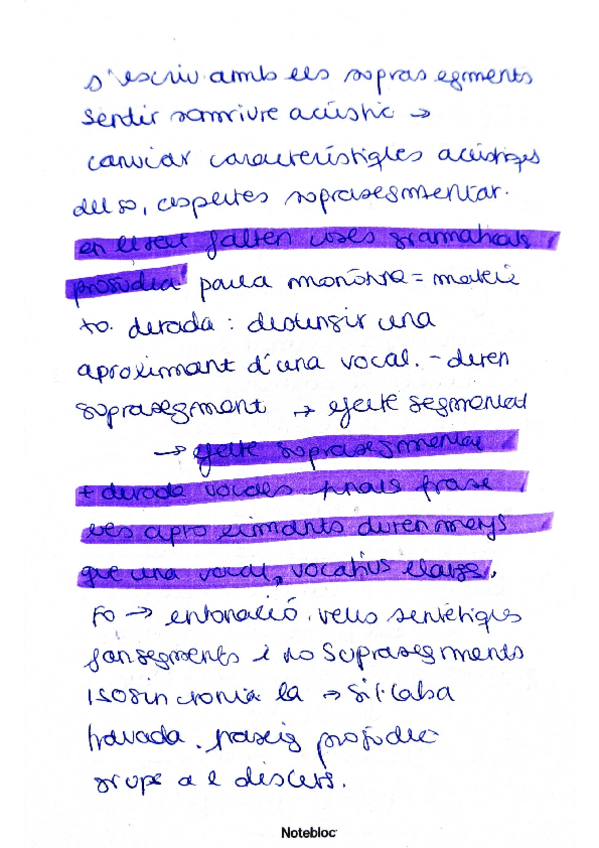 s'escriu amb els suprasegments
sentir somriure acústic →
canviar característiques acústiques
del so, aspectes suprasegmentar.
en el text falten coses gramaticals
prosòdia parla monótona = mateix
to. durada: distingir una
aproximant d'una vocal. - duren
suprasegment → efecte segmental
→ efecte suprasegmental
+ durada vocals finals frase
les aproximants duren menys
que una vocal, vocatius llargs.
Fo → entonació. veus sintètiques
fan segments i no suprasegments
isosincronia la → síl·laba
travada. prosòdic
grups a el discurs.
Notebloc